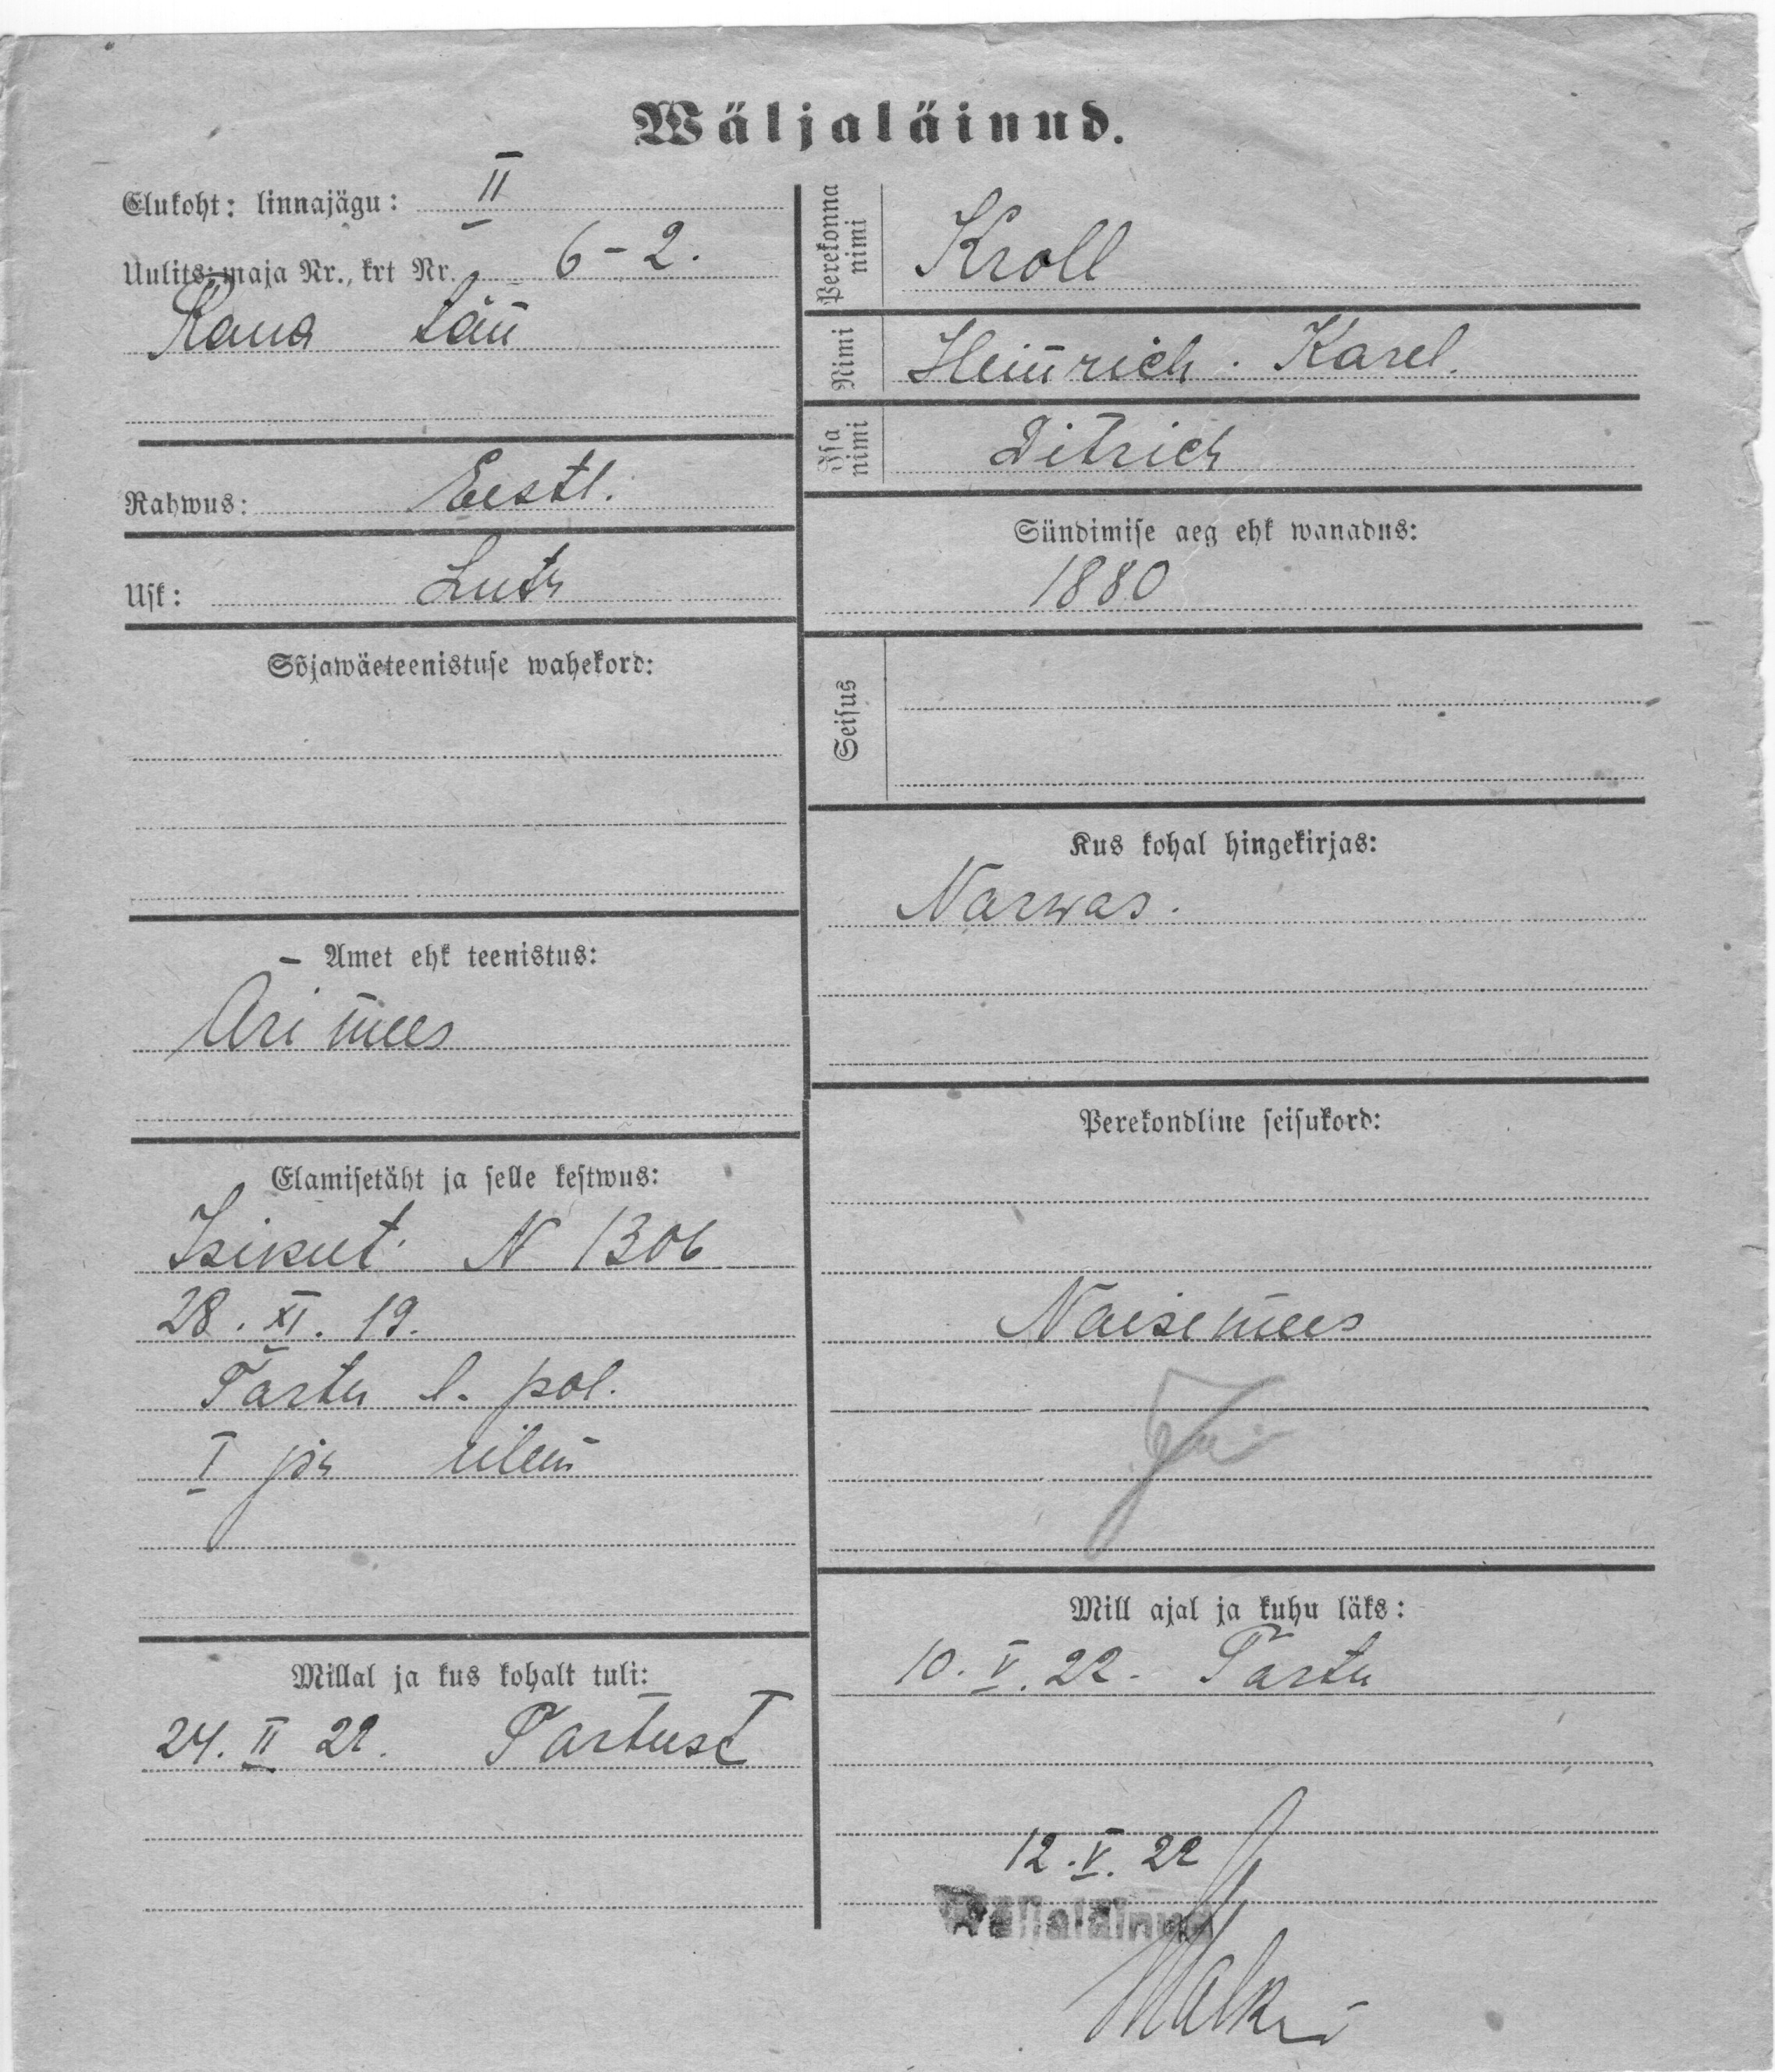 Wäljaläinud.
Elukoht: linnajägu: II
Uulits: maja Nr., krt Nr. 6-2.
Rahwus: Eestl.
Usk: Luth
Sõjawäeteenistuse wahekord:
Amet ehk teenistus:
Äri mees
Elamisetäht ja selle kestwus:
Isikut. N 1306
28. XI. 19.
Tartu l. pol.
I jsk ülem
Millal ja kus kohalt tuli:
24. II 22. Tartust
Perekonna nimi
Kroll
Nimi
Heinrich. Karel.
Isa nimi
Ditrich
Sündimise aeg ehk wanadus:
1880
Seisus
Kus kohal hingekirjas:
Narwas.
Perekondline seisukord:
Naisemees
Mill ajal ja kuhu läks:
10. V. 22. Tartu
12. V. 22
Wäljaläinud